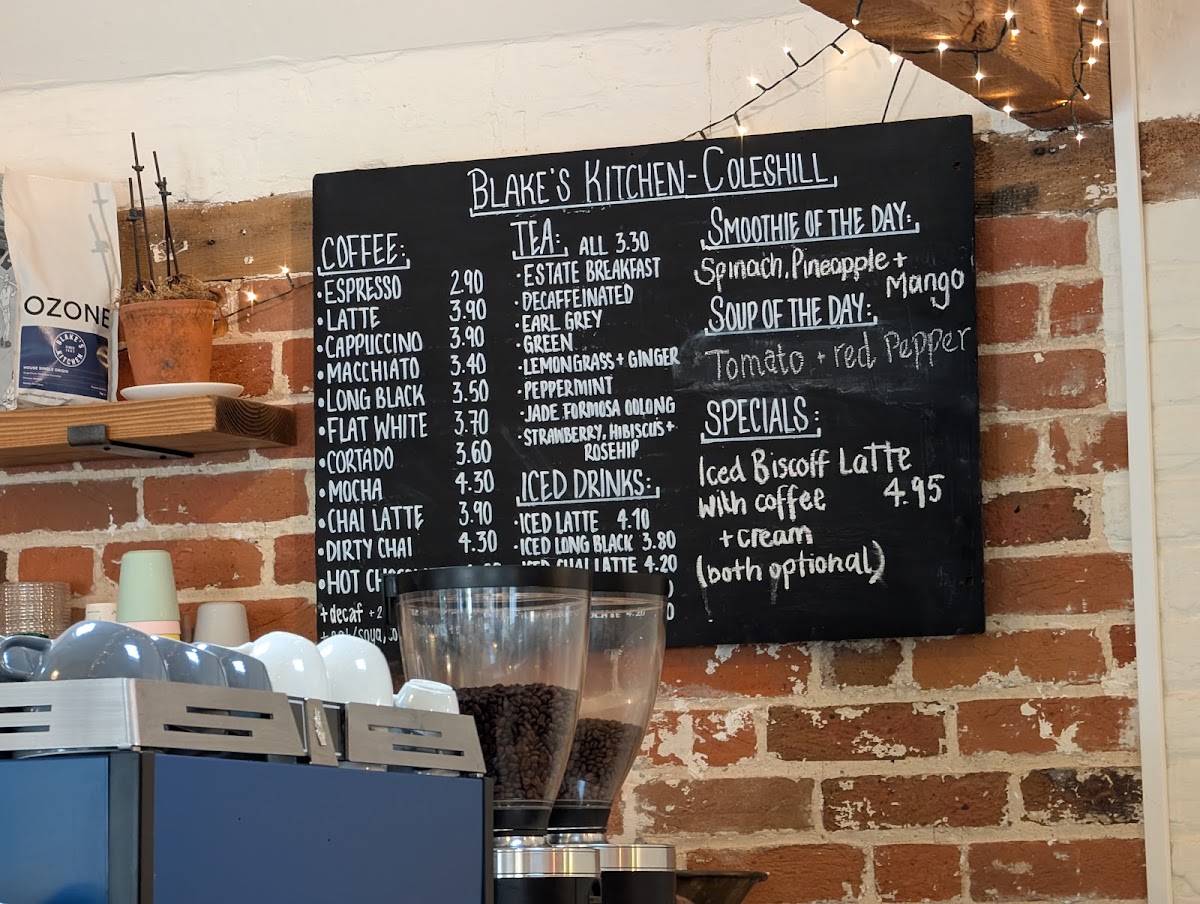 BLAKE'S KITCHEN-COLESHILL
COFFEE:
•ESPRESSO 2.90
•LATTE 3.90
•CAPPUCCINO 3.90
•MACCHIATO 3.40
•LONG BLACK 3.50
•FLAT WHITE 3.70
•CORTADO 3.60
•MOCHA 4.30
•CHAI LATTE 3.90
•DIRTY CHAI 4.30
•HOT
+decaf
TEA: ALL 3.30
•ESTATE BREAKFAST
•DECAFFEINATED
•EARL GREY
•GREEN
•LEMONGRASS+ GINGER
•PEPPERMINT
•JADE FORMOSA OOLONG
•STRAWBERRY, HIBISCUS+
ROSEHIP
ICED DRINKS:
•ICED LATTE 4.10
•ICED LONG BLACK 3.80
ICED CHAI LATTE 4.20
SMOOTHIE OF THE DAY:
Spinach, Pineapple +
Mango
SOUP OF THE DAY:
Tomato + red Pepper
SPECIALS:
Iced Biscoff Latte
with coffee 4.95
+ cream
(both optional)
OZONE
BLAKE'S
KITCHEN
HOUSE SINGLE ORIGIN